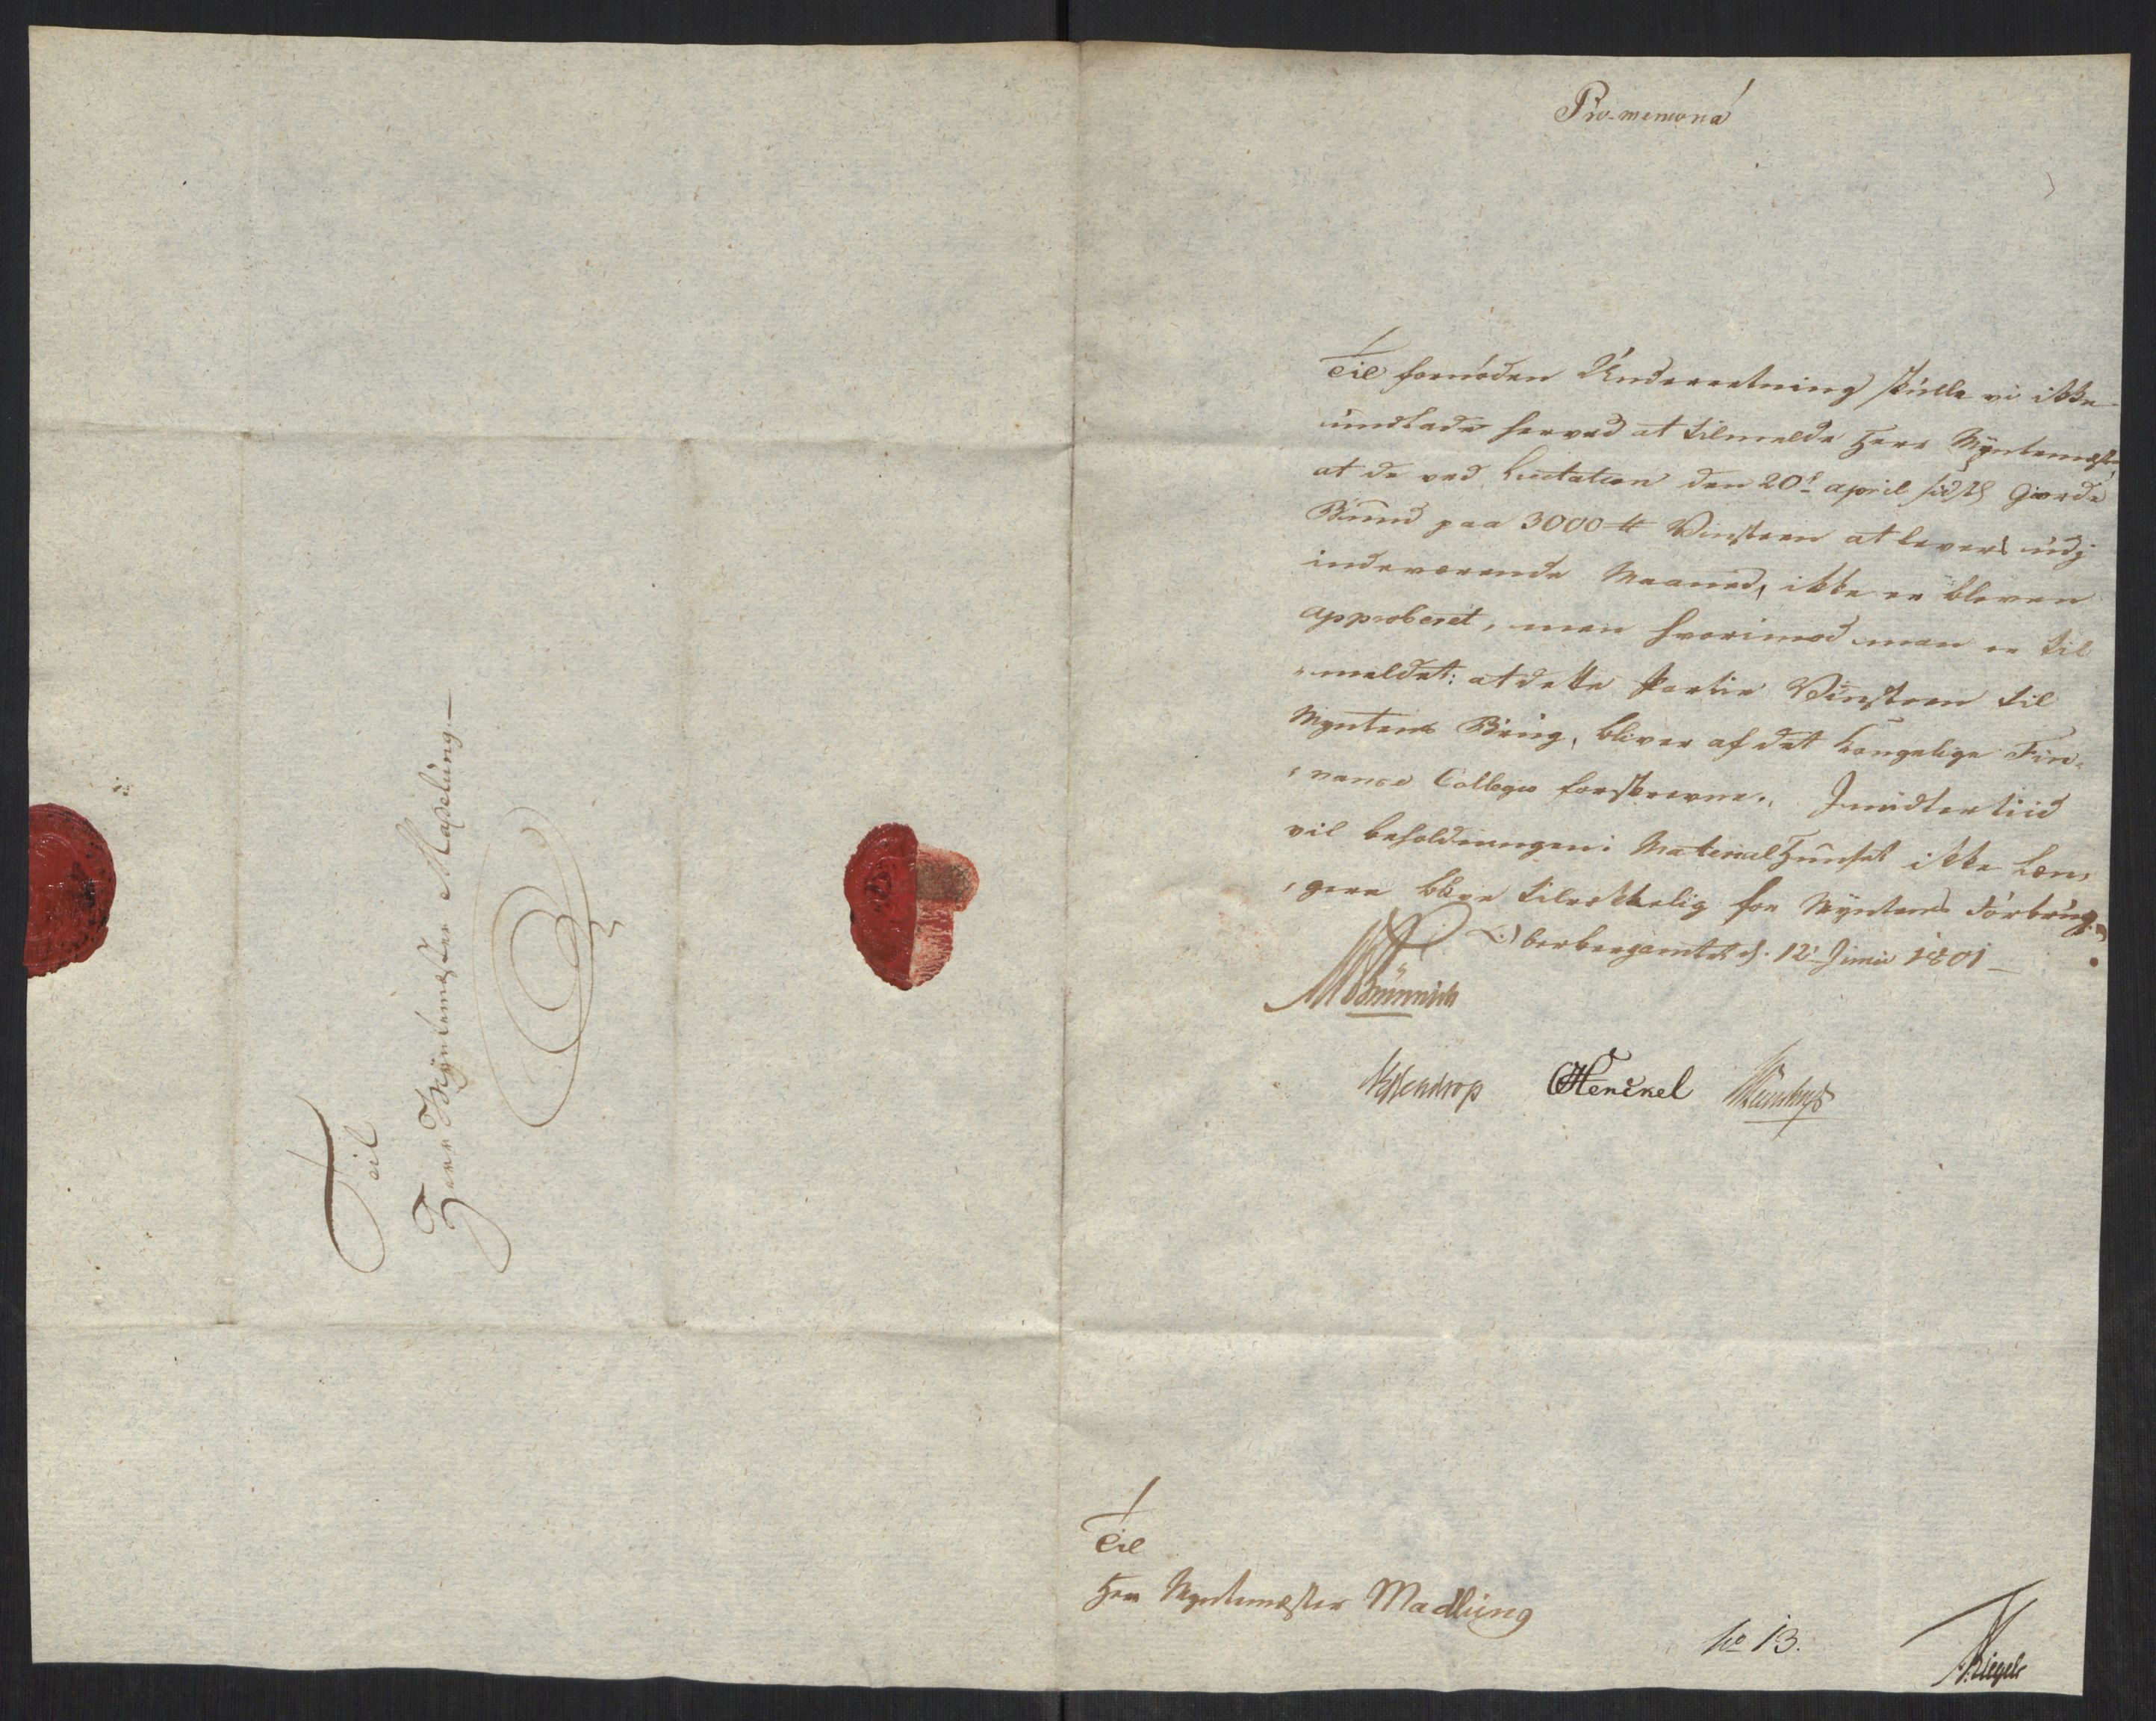 Til
Herr Myntemester Madelung
Pro-memoria
Til fornøden Underretning skulle vi ikke
undlade herved at tilmelde Herr Myntemester
at de ved Licitation den 20de april sidstl giorde
Bund paa 3000 ℔ Vinsteen at levere udj
indeværende Maaned, ikke er bleven
approberet, men hvorimod man er til
meldet: at dette Partie Vinsteen til
Myntens Brug, bliver af det kongelige Fin-
nance Collegio forskreven. Imidlertiid
vil beholdningen i Material Huuset ikke læn-
gere blive tilrækkelig for Myntens Forbrug.
Oberbergamtet d. 12 Junii 1801
MBrünnich
Esendrop Henckel
Til
Herr Myntemester Madlung
No 13.